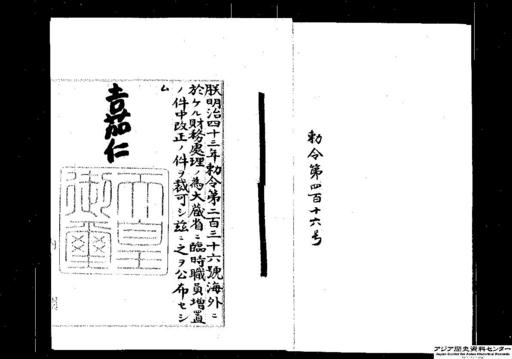 勅令第四百十六号
朕明治四十三年勅令第二百三十六號海外ニ
於ケル財務處理ノ為大藏省ニ臨時職員増置
ノ件中改正ノ件ヲ裁可シ茲ニ之ヲ公布セシ
ム
嘉仁
天皇
御璽
アジア歴史資料センター
Japan Center for Asian Historical Records